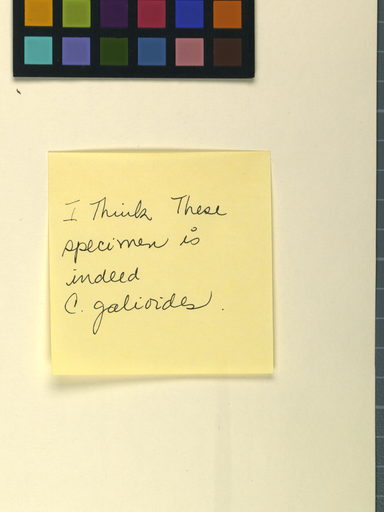 I Think These
specimen is
indeed
C. galioides.